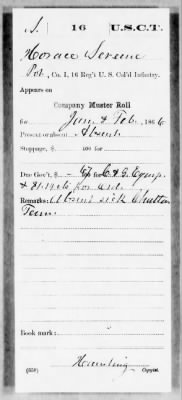 S. 16 U.S.C.T.
Horace Sereme
Pvt., Co. I, 16 Reg't U. S. Col'd Infantry.
Appears on
Company Muster Roll
for Jan & Feb, 1866
Present or absent Absent
Stoppage, $ 100 for
Due Gov't, $ for C & G Equip
for
Remarks: Absent sick Chattan
Tenn
Book mark:
(858) Copyist.